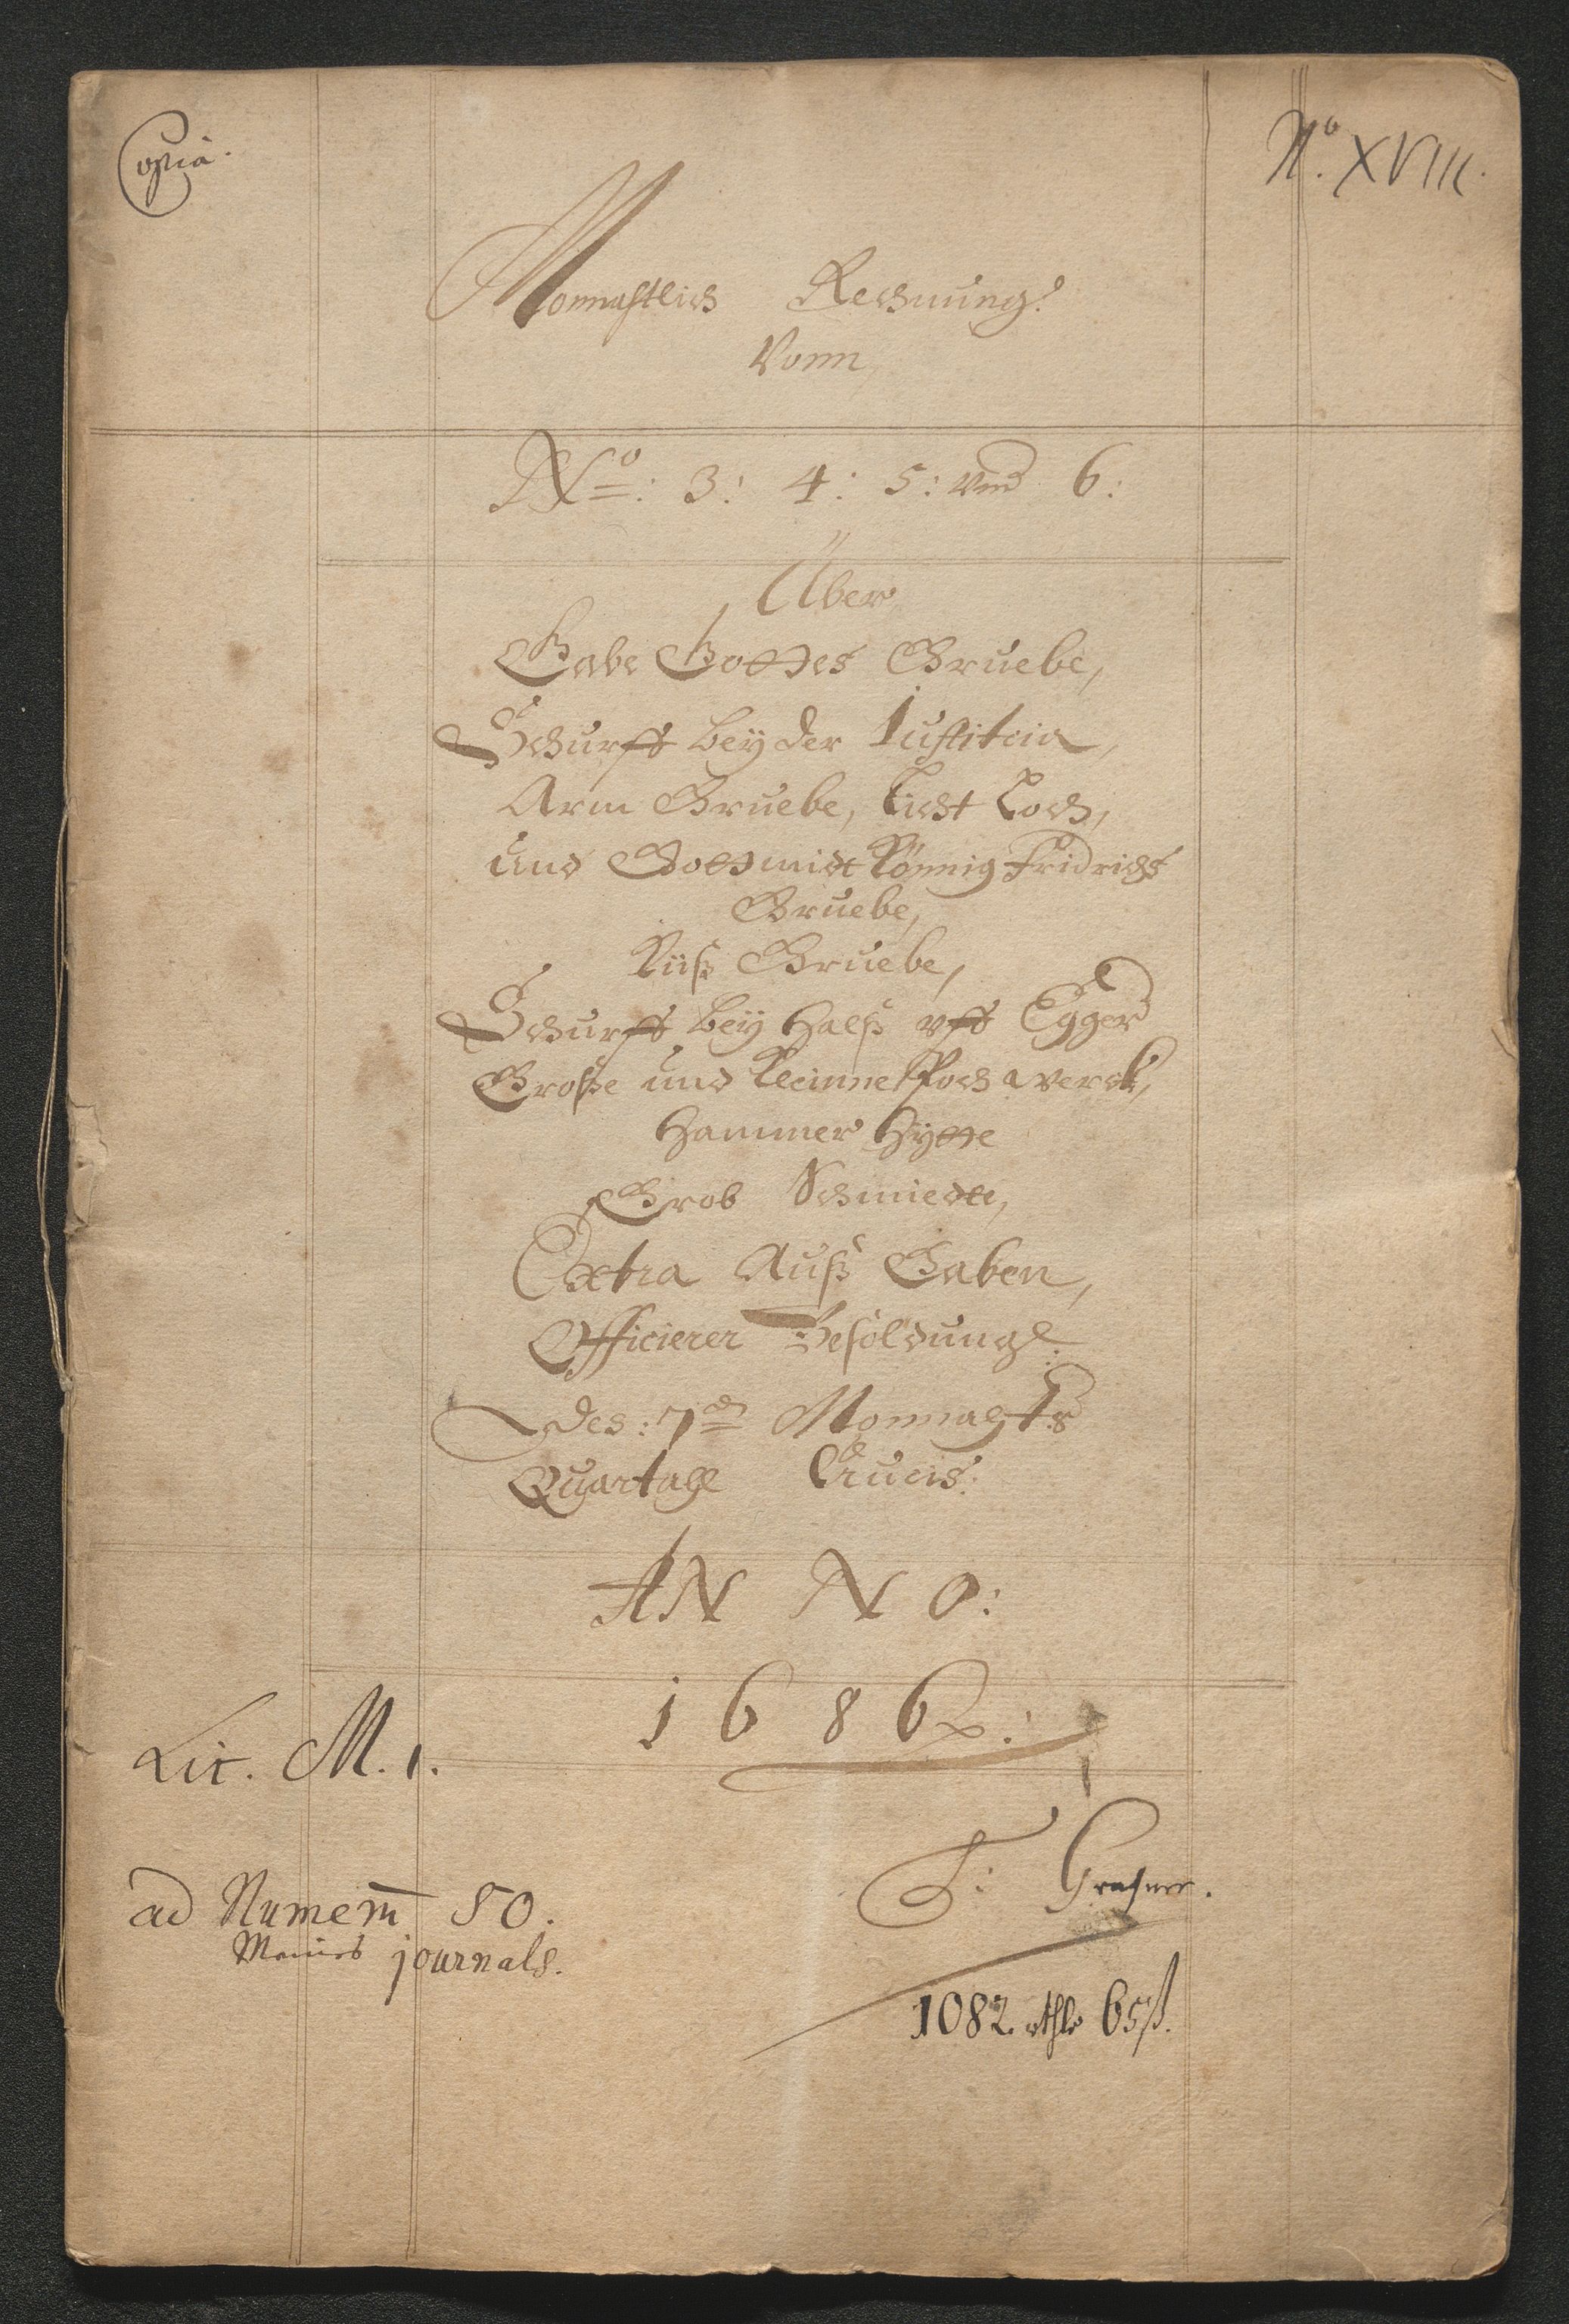 Copia.
No. XVIII.
Monnahtlich Rechnung.
Vonn
No: 3: 4: 5: und 6:
Über
Gabe Gottes Gruebe,
Schurff bey der Justitcia,
Arm Gruebe, Licht Loch,
und Gottmidt Könnig Fridrichs
Gruebe,
Rüß Gruebe,
Schurff bey Halß uff Egger
Große und Kleinne Pochwerck,
Hammer Hytte
Grob Schmiedte,
Extra Auß Gaben,
Officierer Besoldung.
Des: 7den Monnahts
Quartahl Crucis.
ANNO:
1686:
Lit. M. 1.
ad Numerm 50.
Meines journals.
1082. rthlr 65ß.